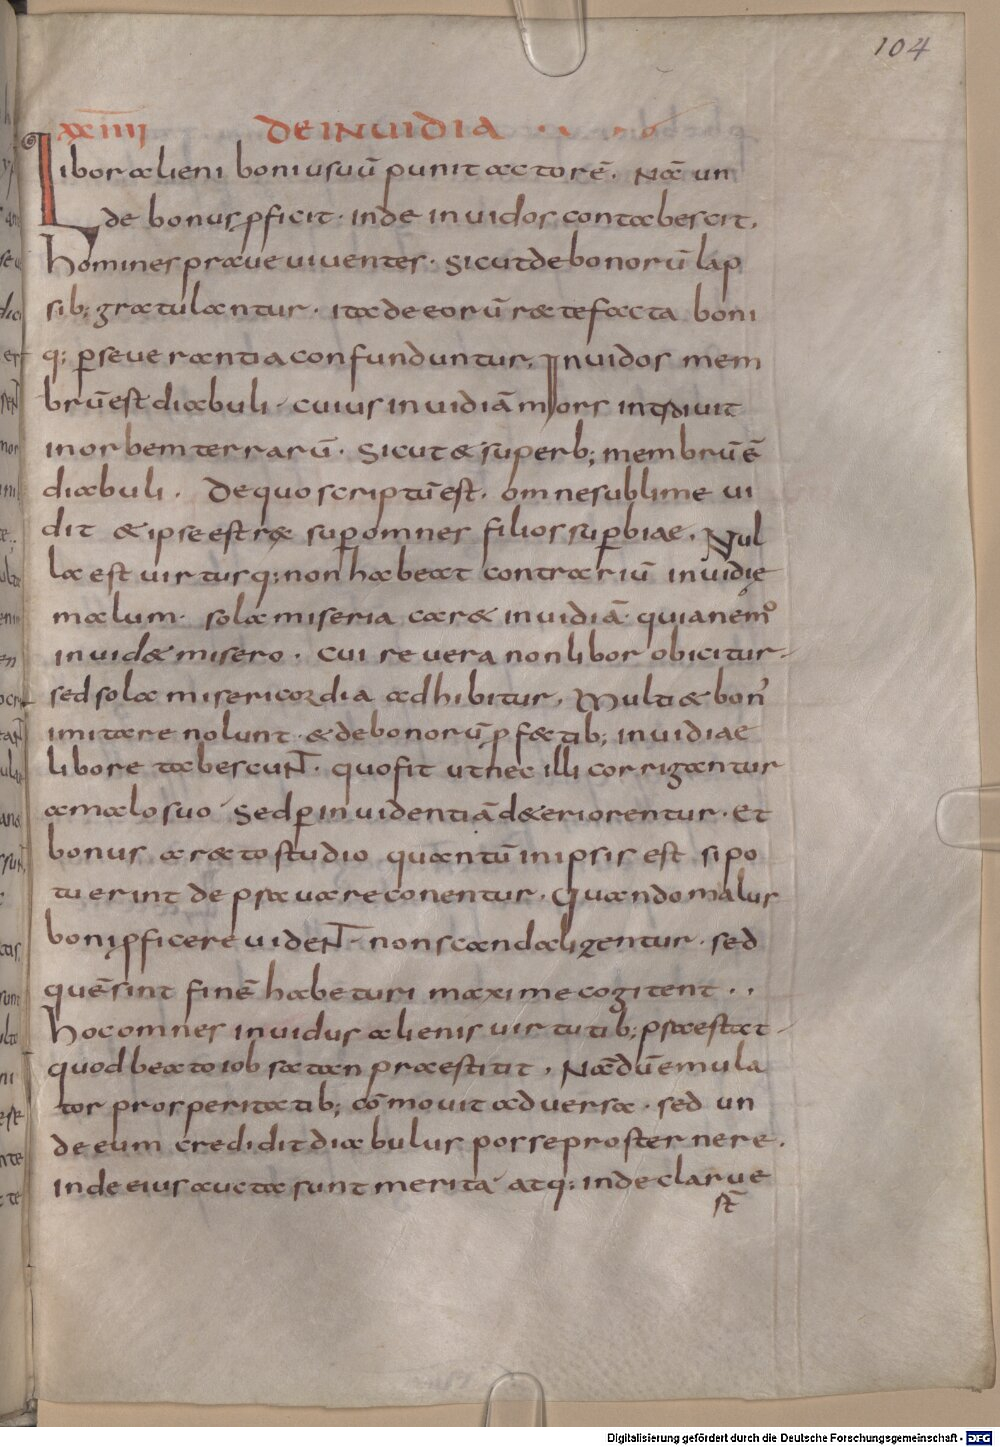 104
xxiiii DE INUIDIA
Libor alieni boni usuū punit actorē. Nā un
de bonus pficit. inde inuidos contabescit.
homines praue uiuentes. sicut de bonorū lap
sib; gratulantur. ita de eorū rate facta boni
q; pseuerantia confunduntur. Inuidos mem
brū est diabuli. cuius inuidiā mors introiuit
in orbem terrarū. Sicut & superb; membrū ē
diabuli. De quo scriptū est. omne sublime ui
dit & ipse est rex sup omnes filios supbiae. Nul
la est uirtus q; non habeat contrariū inuidię
malum. sola miseria car& inuidiā. quia nemo
inuid& misero. cui reuera non libor obicitur
sed sola misericordia adhibitur. Multi & boni
imitare nolunt. & de bonorū pfectib; inuidiae
libore tabescunt. quo fit ut nec illi corrigantur
a malo suo. Sed p inuidentiā d&eriorentur. Et
bonus a rato studio quantū in ipsis est si po
tuerint depsauare conentur. Quando malus
boni pficere uident. non scandaligentur. sed
quē sint finē habeturi maxime cogitent..
hoc omnes inuidus alienis uirtutib; psaestat
quod beato iob satan praestitit. Nā dū emula
tor prosperitatib; cōmouit aduersa. sed un
de eum credidit diabulus posse prosternere.
inde eius aucta sunt merita atq; inde clarue
st̄
Digitalisierung gefördert durch die Deutsche Forschungsgemeinschaft - DFG